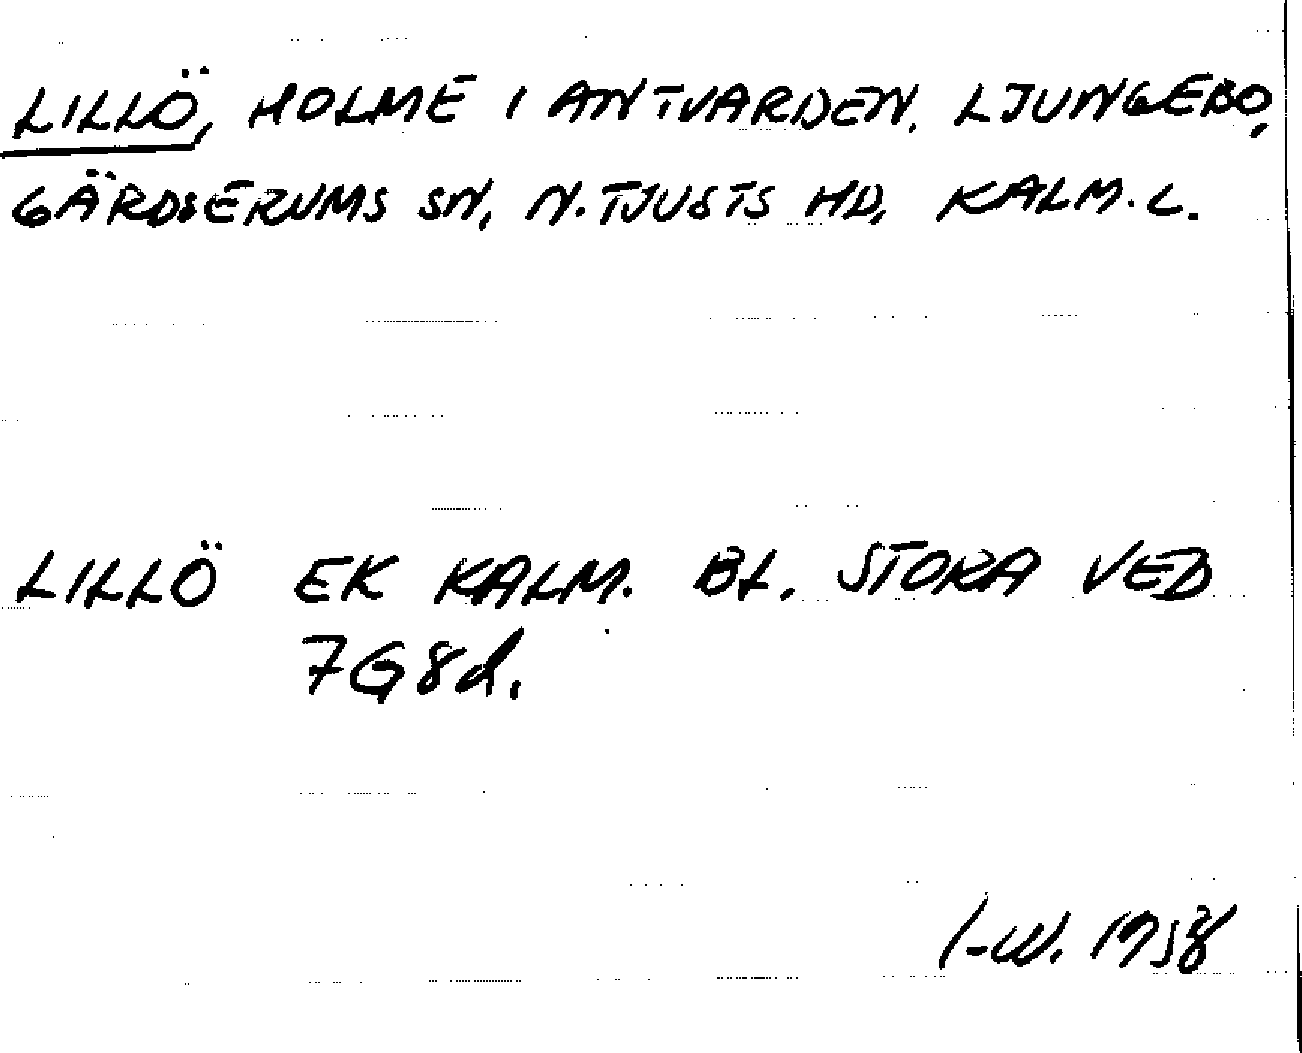 LILLÖ, HOLME I ANTVARDEN. LJUNGEBO,
GÄRDSERUMS SN, N. TJUSTS HD, KALM. L.
LILLÖ EK KALM. BL. STORA VED
7G8d.
1958